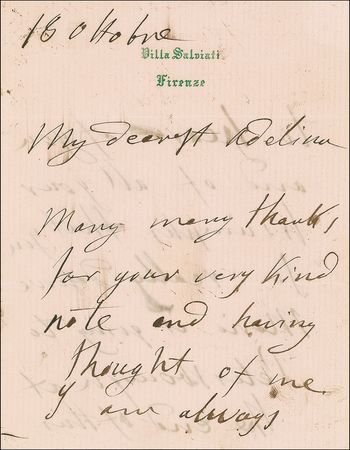 18 Ottobre
Villa Salviati
Firenze
My dearest Adelina
Many many thanks
for your very kind
note and having
thought of me.
I am always